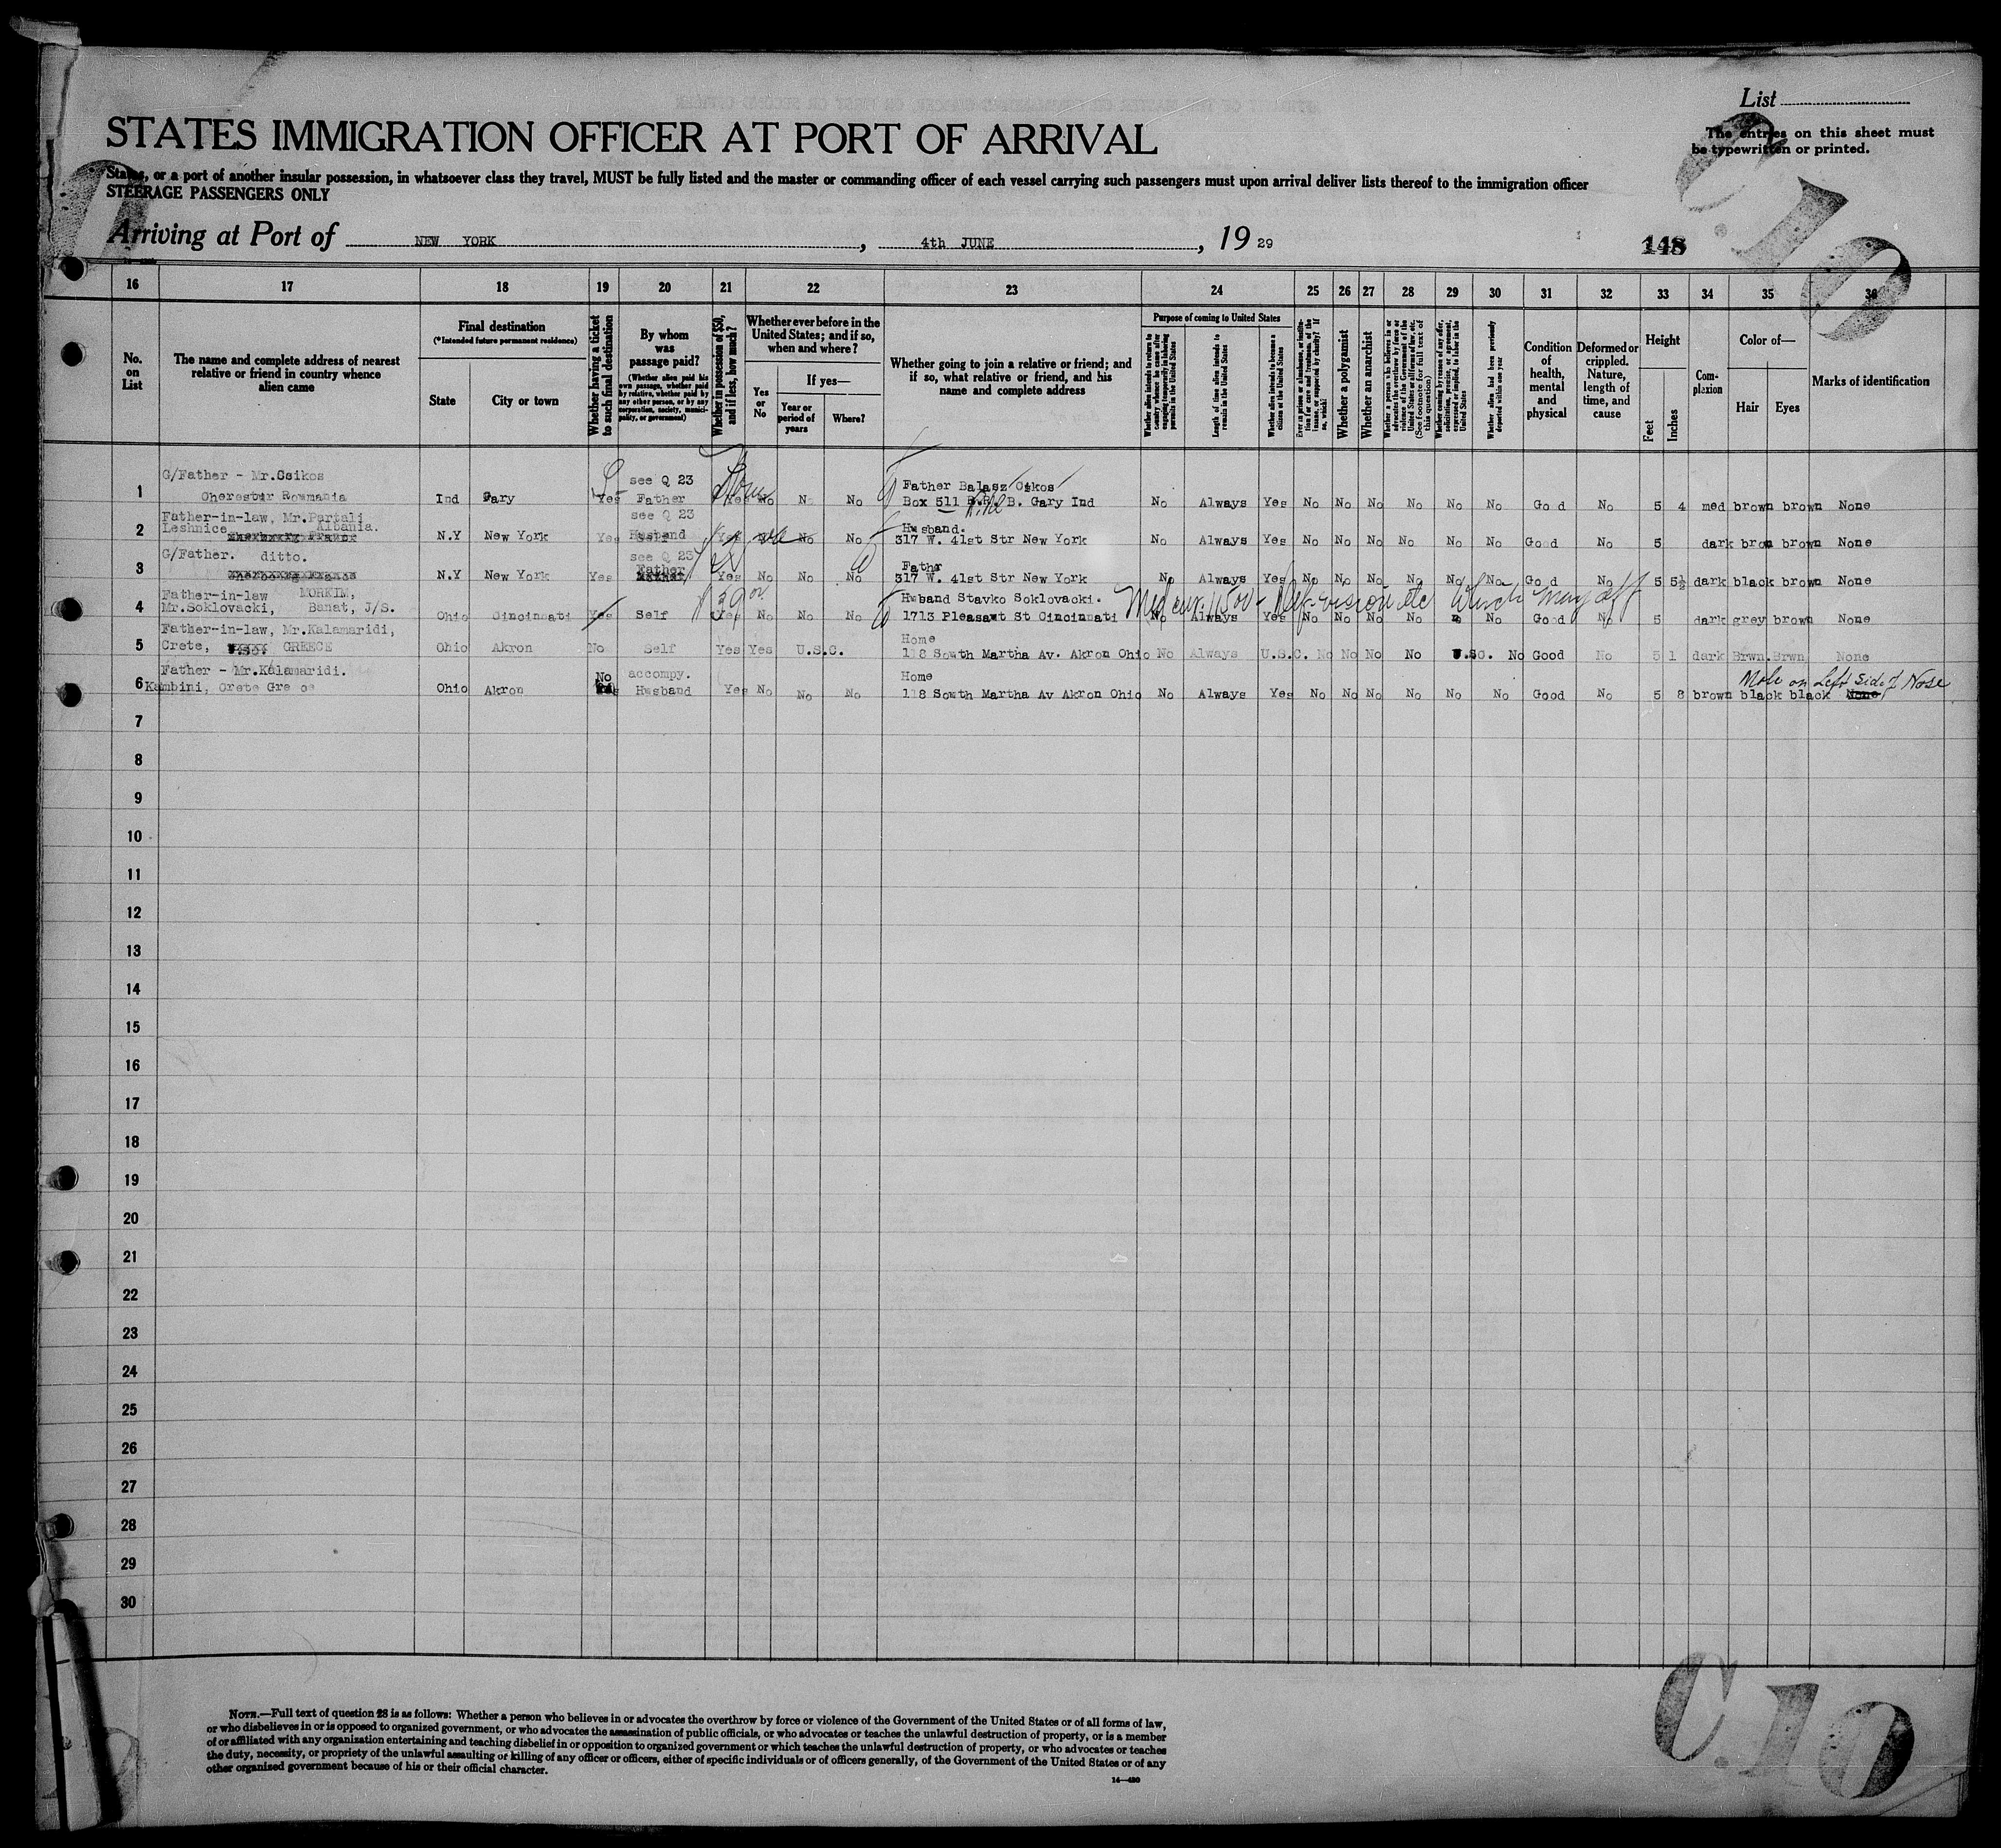 List
The entries on this sheet must
be typewritten or printed.
STATES IMMIGRATION OFFICER AT PORT OF ARRIVAL
States, or a port of another insular possession, in whatsoever class they travel, MUST be fully listed and the master or commanding officer of each vessel carrying such passengers must upon arrival deliver lists thereof to the immigration officer
STEERAGE PASSENGERS ONLY
Arriving at Port of NEW YORK, 4th JUNE, 19 29
148
C.10
16 17 18 19 20 21 22 23 24 25 26 27 28 29 30 31 32 33 34 35 36
No. on List
The name and complete address of nearest relative or friend in country whence alien came
Final destination
(*Intended future permanent residence)
State
City or town
Whether having a ticket to such final destination
By whom was passage paid?
(Whether alien paid his own passage, whether paid by relative, whether paid by any other person, or by any corporation, society, municipality, or government)
Whether in possession of $50, and if less, how much?
Whether ever before in the United States; and if so, when and where?
Yes or No
If yes—
Year or period of years
Where?
Whether going to join a relative or friend; and if so, what relative or friend, and his name and complete address
Purpose of coming to United States
Whether alien intends to return to country whence he came after engaging temporarily in laboring pursuits in the United States
Length of time alien intends to remain in the United States
Whether alien intends to become a citizen of the United States
Whether a polygamist
Whether an anarchist
Condition of health, mental and physical
Deformed or crippled. Nature, length of time, and cause
Height
Feet
Inches
Complexion
Color of—
Hair
Eyes
Marks of identification
G/Father - Mr.Csikos see Q 23 Father Balasz Csikos
1 Cherestur Roumania Ind Gary Yes Father Yes No No No Box 511 B. Gary Ind No Always Yes No No No No No No Good No 5 4 med brown brown None
Father-in-law, Mr.Partali see Q 23
Leshnice Albania. Husband Husband.
2 N.Y New York Yes Self Yes No No No 317 W. 41st Str New York No Always Yes No No No No No No Good No 5 dark bron brown None
G/Father. ditto. see Q 23
Father Fathr
3 N.Y New York Yes Yes No No No 317 W. 41st Str New York No Always Yes No No No No No No Good No 5 5½ dark black brown None
Father-in-law MOREIM, Husband Stavko Soklovacki.
4 Mr.Soklovacki, Banat, J/S. Ohio Cincinnati Yes Self Yes No No No 1713 Pleasawt St Cincinnati No Always Yes No No No No No No Good No 5 dark grey brown None
Father-in-law, Mr.Kalamaridi, Home
5 Crete, GREECE Ohio Akron No Self Yes Yes U.S.C. 118 South Martha Av. Akron Ohio No Always U.S.C. No No No No U.SC. No Good No 5 1 dark Brwn Brwn None
Father - Mr.Kalamaridi. No accompy. Home Mole on Left Side of Nose
6 Kambini, Crete Greece Ohio Akron Husband Yes No No No 118 South Martha Av Akron Ohio No Always Yes No No No No No No Good No 5 8 brown black black None
7
8
9
10
11
12
13
14
15
16
17
18
19
20
21
22
23
24
25
26
27
28
29
30
NOTE.—Full text of question 28 is as follows: Whether a person who believes in or advocates the overthrow by force or violence of the Government of the United States or of all forms of law,
or who disbelieves in or is opposed to organized government, or who advocates the assassination of public officials, or who advocates or teaches the unlawful destruction of property, or is a member
of or affiliated with any organization entertaining and teaching disbelief in or opposition to organized government or which teaches the unlawful destruction of property, or who advocates or teaches
the duty, necessity, or propriety of the unlawful assaulting or killing of any officer or officers, either of specific individuals or of officers generally, of the Government of the United States or of any
other organized government because of his or their official character.
14—420
C.10